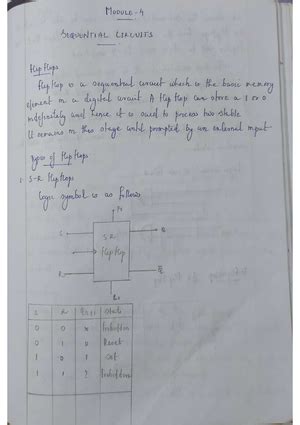 MODULE-4
SEQUENTIAL CIRCUITS
Flip Flops
Flip Flop is a sequential circuit which is the basic memory
element in a digital circuit. A flip flop can store a 1 or 0
indefinitely and hence it is said to process two stable
It remains in this stage until prompted by an external input
Types of Flip Flops
1. S-R Flip Flops
Logic symbol is as follows
S
S R
Flip Flop
R
S R State
0 0
0 1 0 Reset
1 0 1 Set
1 1 ?